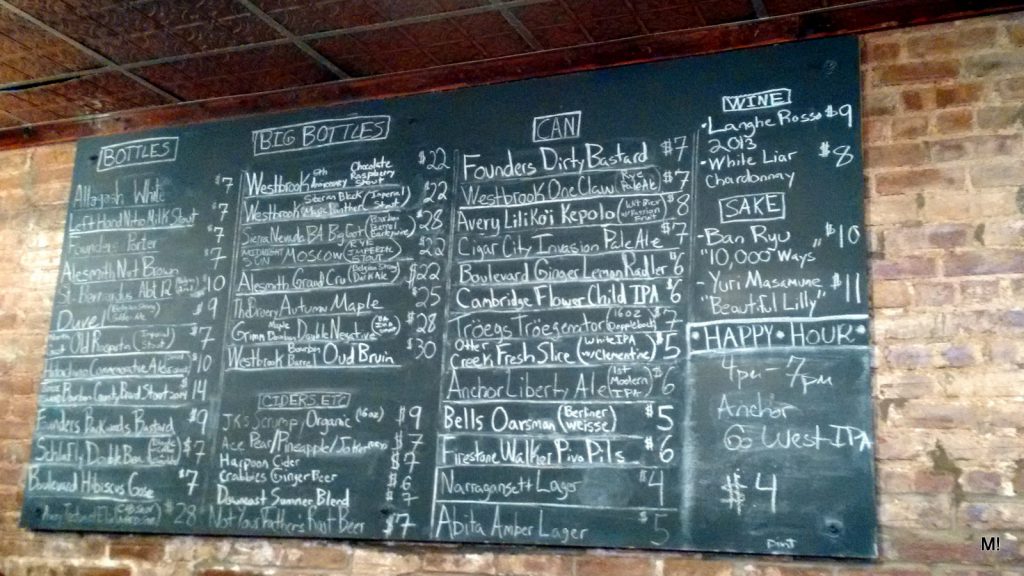 BOTTLES
Allagash White $7
Left Hand Nitro Milk Stout $7
Founders Porter $7
Alesmith Nut Brown $10
St. Abt 12 $9
Duvel
Old Rasputin (Imperial Stout) $7
Commemorative Ale $10
Bourbon County Brand Stout $14
Founders Backwoods Bastard $9
Schlafly Double Bean $7
Boulevard Hibiscus Gose $7
$28
BIG BOTTLES
Westbrook 5th Anniversary Chocolate Raspberry Stout $22
Westbrook Siberian Black Magic Panther (Imperial Stout) $22
Sierra Nevada BA Big Foot (Bourbon Barrel Barleywine) $28
Moscow (RYE Stout) $22
Alesmith Grand Cru (Belgian Strong Dark Ale) $22
The Bruery Autumn Maple $25
Grimm Maple Bourbon Double Negative $28
Westbrook Bourbon Barrel Oud Bruin $30
CIDERS ETC
JK's Scrumpy Organic (16oz) $9
Ace Pear/Pineapple/Joker $7
Harpoon Cider $7
Crabbies Ginger Beer $6
Downeast Summer Blend $7
Not Your Fathers Root Beer $7
CAN
Founders Dirty Bastard $7
Westbrook One Claw (Rye Pale Ale) $7
Avery Liliko'i Kepolo (Wit Bier w/Passion Fruit) $8
Cigar City Invasion Pale Ale $7
Boulevard Ginger Lemon Radler $6
Cambridge Flower Child IPA $6
Tröegs Tröegenator (16oz Doppelbock) $7
Otter Creek Fresh Slice (White IPA w/Clementine) $5
Anchor Liberty Ale (1st Modern IPA) $6
Bells Oarsman (Berliner weisse) $5
Firestone Walker Pivo Pils $6
Narragansett Lager $4
Abita Amber Lager $5
WINE
• Langhe Rosso $9
2013
• White Liar $8
Chardonnay
SAKE
- Ban Ryu $10
"10,000 Ways"
- Yuri Masamune $11
"Beautiful Lilly"
HAPPY • HOUR •
4pm - 7pm
Anchor
Go West IPA
$4
pint
M!